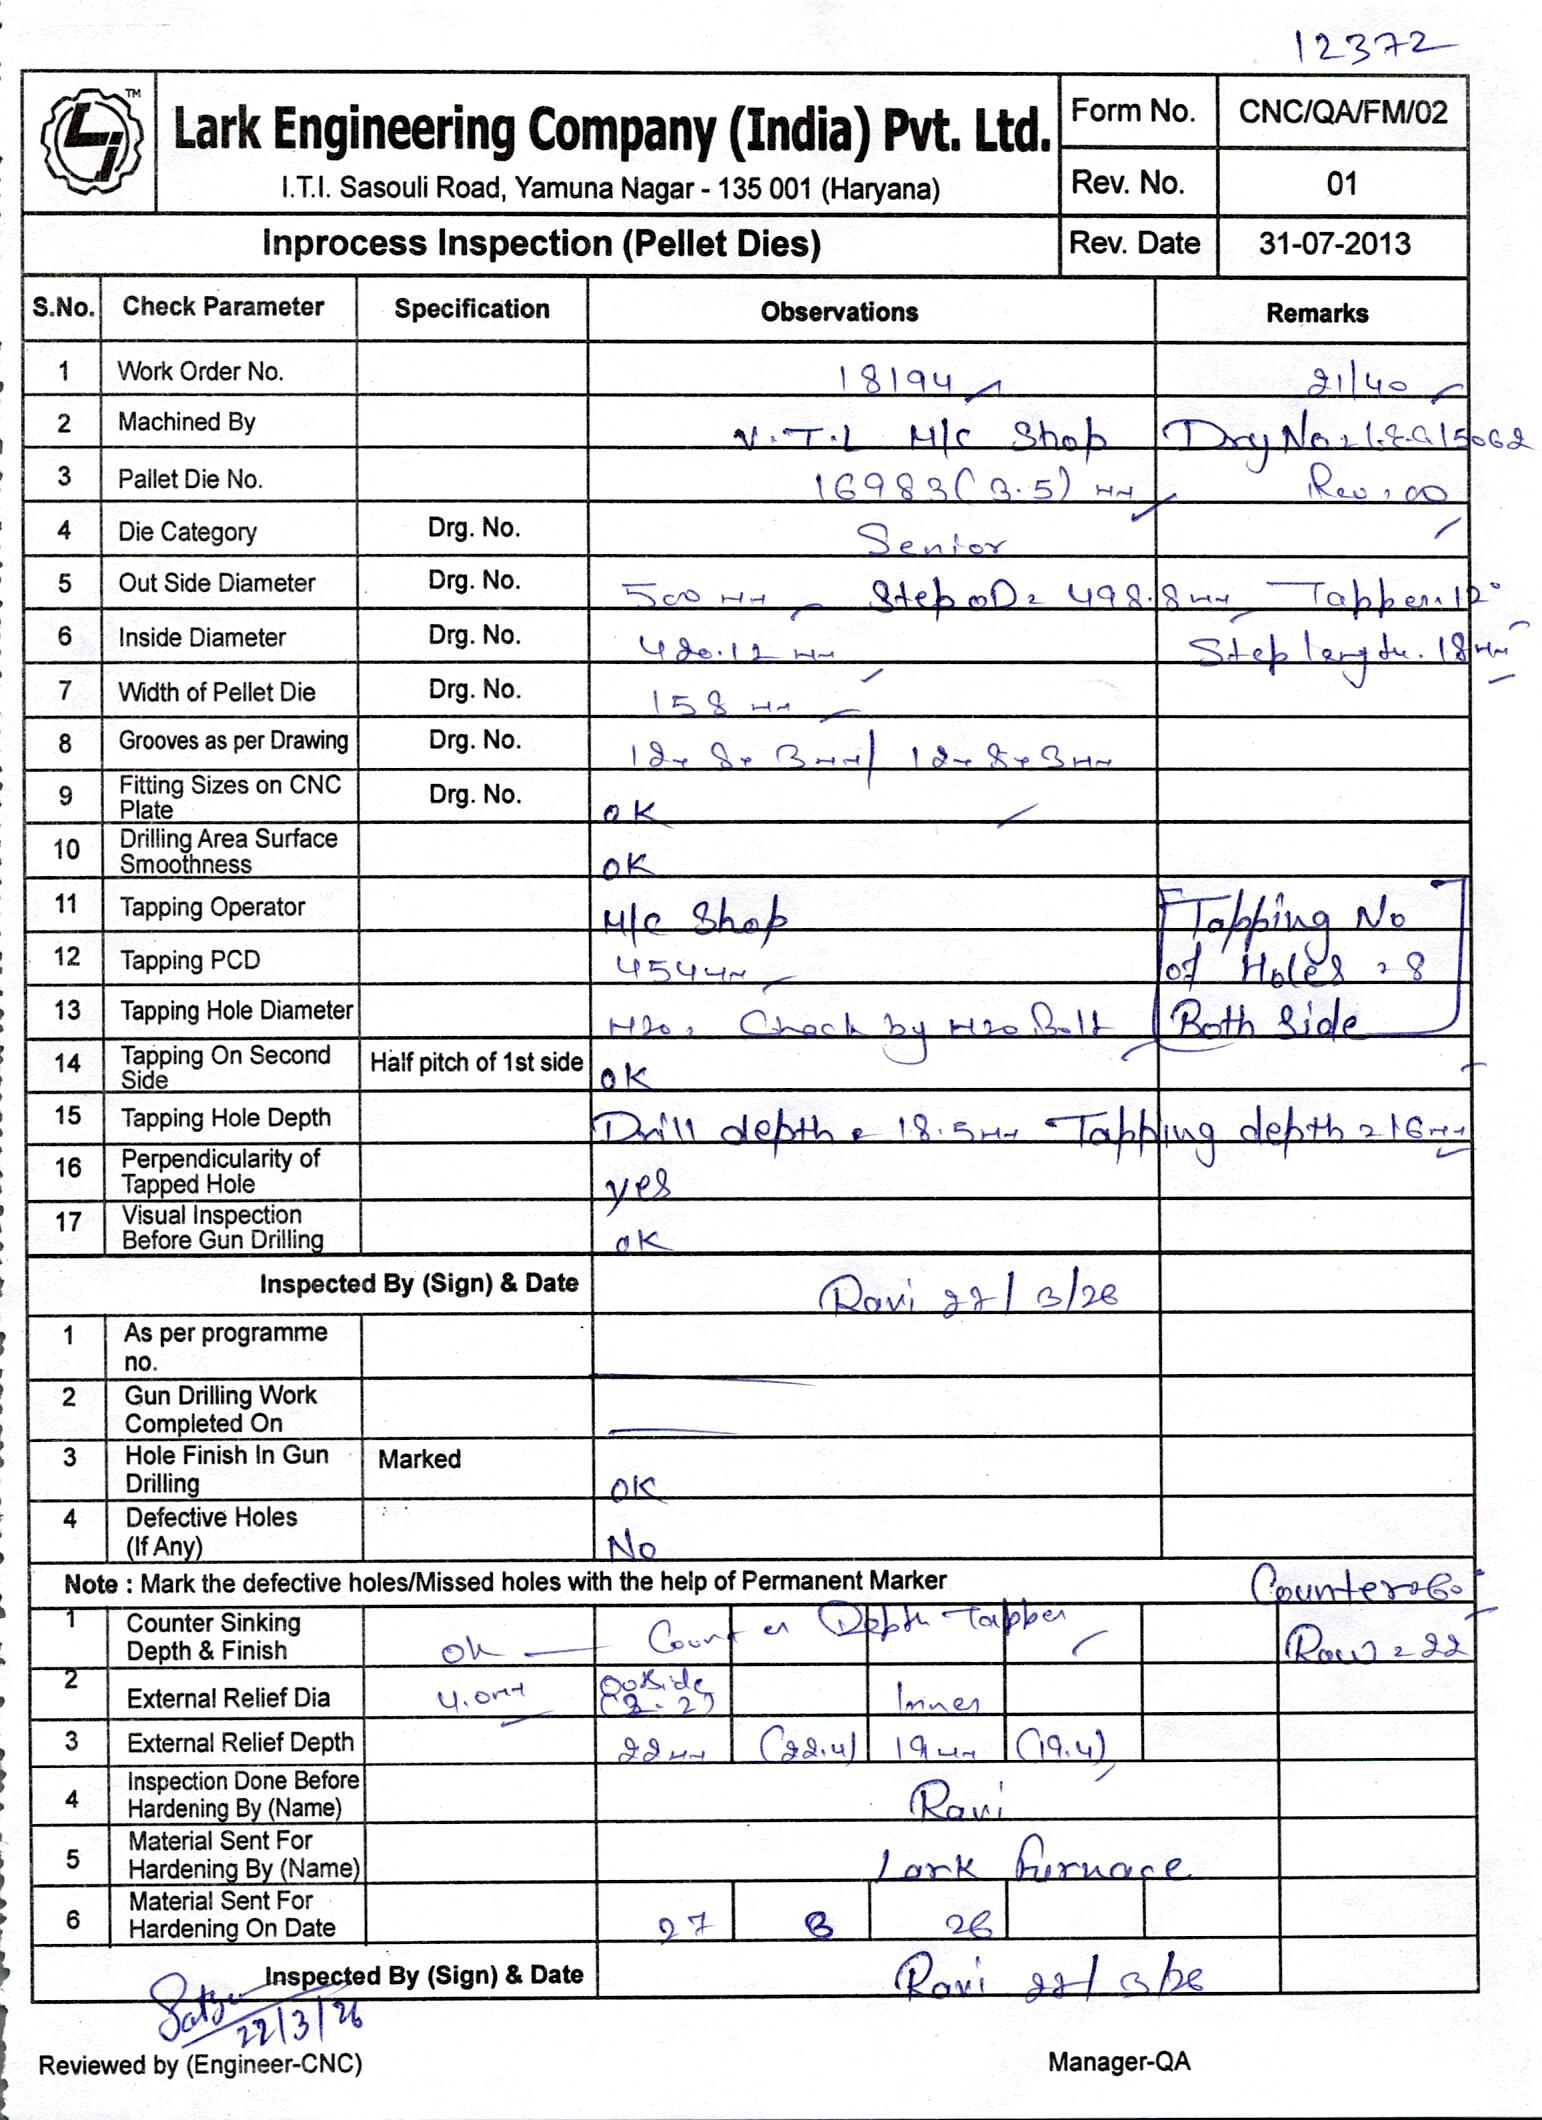 12372
TM
Lark Engineering Company (India) Pvt. Ltd.
I.T.I. Sasouli Road, Yamuna Nagar - 135 001 (Haryana)
Form No. CNC/QA/FM/02
Rev. No. 01
Inprocess Inspection (Pellet Dies) Rev. Date 31-07-2013
S.No. Check Parameter Specification Observations Remarks
1 Work Order No. 18194 21/40
2 Machined By V.T.L M/C Shop Drg No
3 Pallet Die No. 16983 (3.5) Rev. 00
4 Die Category Drg. No. Senior
5 Out Side Diameter Drg. No. 500 mm Step OD = 498.8 mm Tapper. 12°
6 Inside Diameter Drg. No. 420.12 mm Step length. 18 mm
7 Width of Pellet Die Drg. No. 158 mm
8 Grooves as per Drawing Drg. No. 12 x 8 x 3 mm / 12 x 8 x 3 mm
9 Fitting Sizes on CNC Plate Drg. No. OK
10 Drilling Area Surface Smoothness OK
11 Tapping Operator M/C Shop Tapping No
12 Tapping PCD 454 mm of Holes = 8
13 Tapping Hole Diameter M20, Check by M20 Bolt Both Side
14 Tapping On Second Side Half pitch of 1st side OK
15 Tapping Hole Depth Drill depth = 18.5 mm Tapping depth = 16 mm
16 Perpendicularity of Tapped Hole yes
17 Visual Inspection Before Gun Drilling OK
Inspected By (Sign) & Date Ravi 22/3/26
1 As per programme no.
2 Gun Drilling Work Completed On
3 Hole Finish In Gun Drilling Marked OK
4 Defective Holes (If Any) No
Note : Mark the defective holes/Missed holes with the help of Permanent Marker Counter = 60°
1 Counter Sinking Depth & Finish OK Counter Depth Tapper Row = 22
2 External Relief Dia 4.0 mm Outside (2-2) Inner
3 External Relief Depth 22 mm (22.4) 19 mm (19.4)
4 Inspection Done Before Hardening By (Name) Ravi
5 Material Sent For Hardening By (Name) Lark Furnace
6 Material Sent For Hardening On Date 27 3 26
Inspected By (Sign) & Date Ravi 22/3/26
22/3/26
Reviewed by (Engineer-CNC) Manager-QA